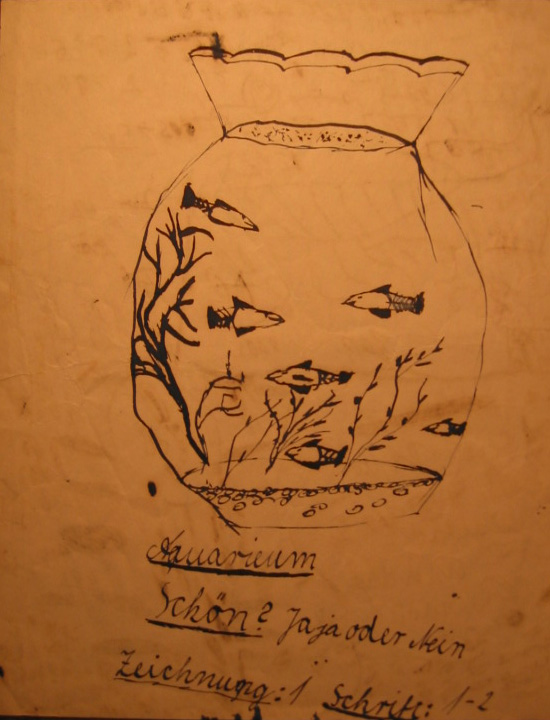 Aquarieum
Schön? Jaja oder Nein
Zeichnung: 1 Schrift: 1-2